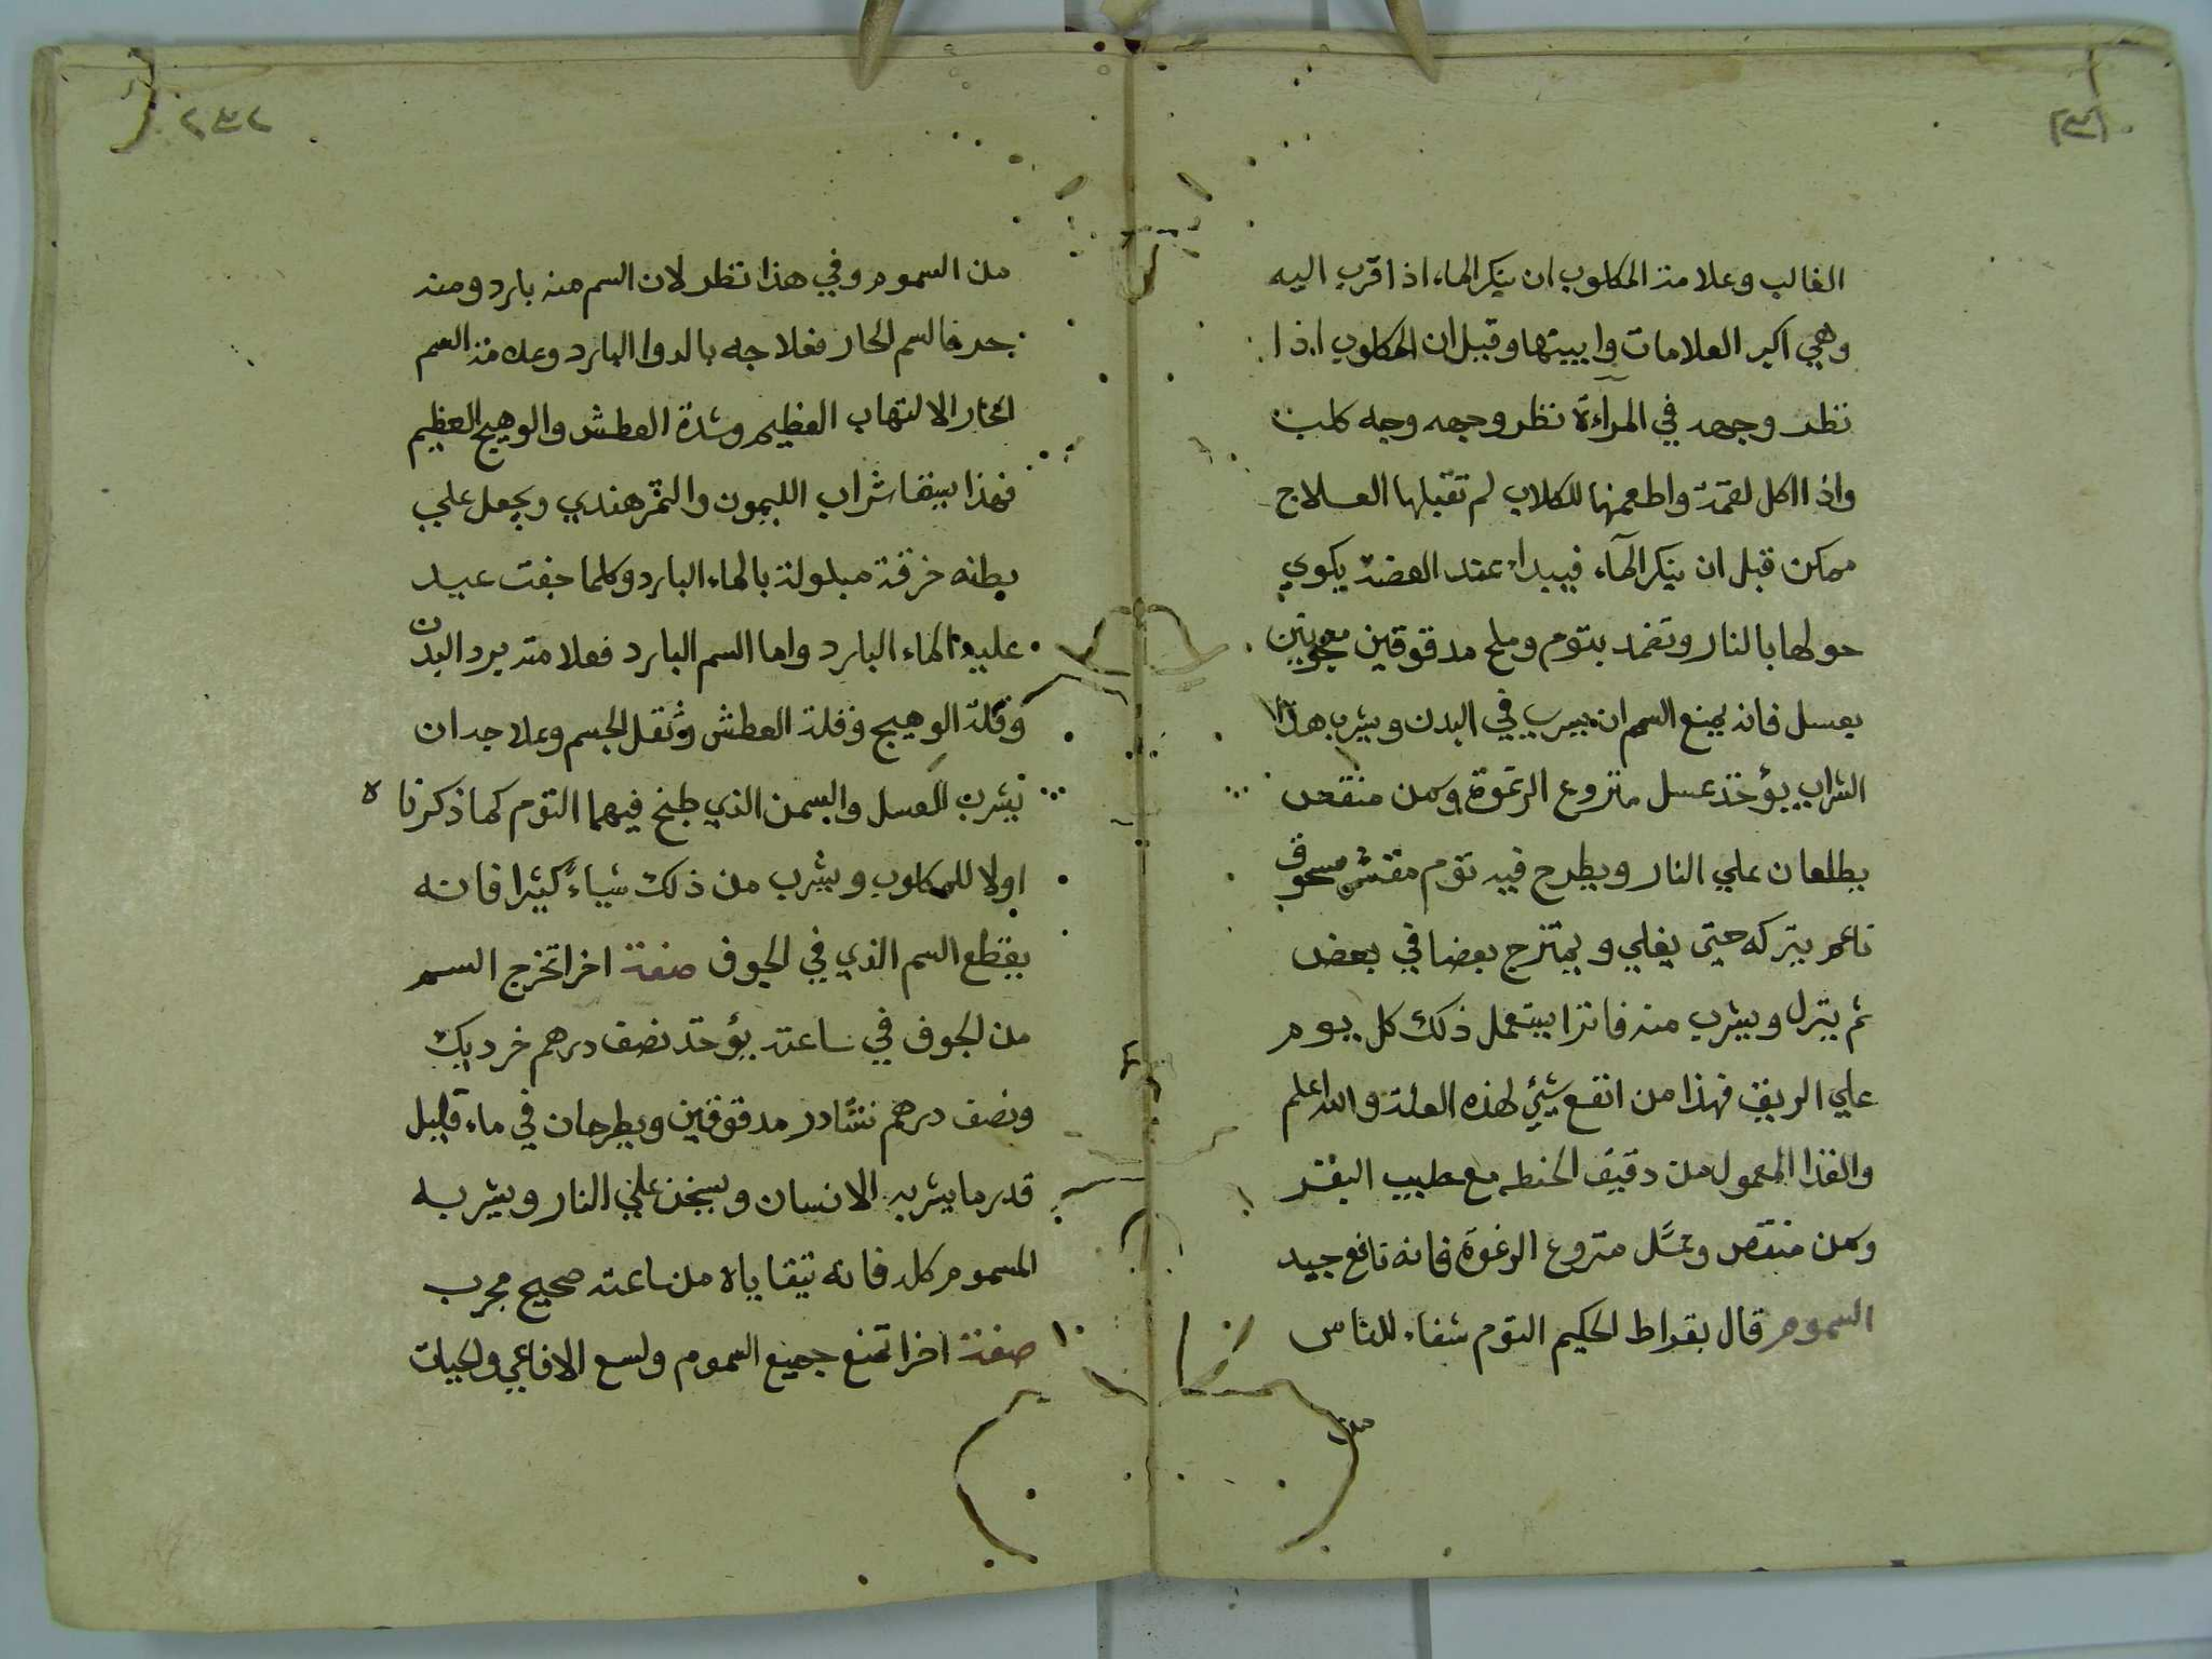 الغالب وعلامة المكلوب ان ينكر الماء اذا قرب اليه
وهي اكبر العلامات وابينها وقيل ان المكلوب اذا
نظر وجهه في المرآءة نظر وجهه وجه كلب
واذا اكل لقمة واطعمها للكلاب لم تقبلها العلاج
ممكن قبل ان ينكر المآء فيبداء عند العضة يكوي
حولها بالنار وتضمد بتوم وملح مدقوقين معجونين
بعسل فانه يمنع السم ان يسرب في البدن ويشرب هذا
الشراب يؤخذ عسل منزوع الرغوة وسمن منقص
يطلعان علي النار ويطرح فيه توم مقشر مسحوق
ناعم يتركه حتى يغلي ويمتزج بعضا في بعض
ثم ينزل ويشرب منه فاترا يستعمل ذلك كل يوم
علي الريق فهذا من انفع شيئ لهذه العلة والله اعلم
والغذا المعمول من دقيق الحنطه مع حليب البقر
وسمن منقص وعسل منزوع الرغوة فانه نافع جيد
السموم قال بقراط الحكيم التوم شفاء للناس
من
٢٣٢
من السموم وفي هذا نظر لان السم منه بارد ومنه
حر فالسم الحار فعلاجه بالدوا البارد وعلامة السم
الحار الالتهاب العظيم وشدة العطش والوهيج العظيم
فهذا يسقا شراب الليمون والتمر هندي ويجعل علي
بطنه خرقة مبلولة بالماء البارد وكلما جفت عيد
عليها الماء البارد واما السم البارد فعلامته برد البدن
وقلة الوهيج وقلة العطش وثقل الجسم وعلاجه ان
يشرب العسل والسمن الذي طبخ فيهما التوم كما ذكرنا ه
اولا للمكلوب ويشرب من ذلك شياءً كثيرا فانه
يقطع السم الذي في الجوف صفة اخرا تخرج السم
من الجوف في ساعته يؤخذ نصف درهم خرديك
ونصف درهم نشادر مدقوقين ويطرحان في ماء قليل
قدر ما يشربه الانسان ويسخن علي النار ويشربه
المسموم كله فانه يتقاياه من ساعته صحيح مجرب
صفة اخرا تمنع جميع السموم ولسع الافاعي والحيات